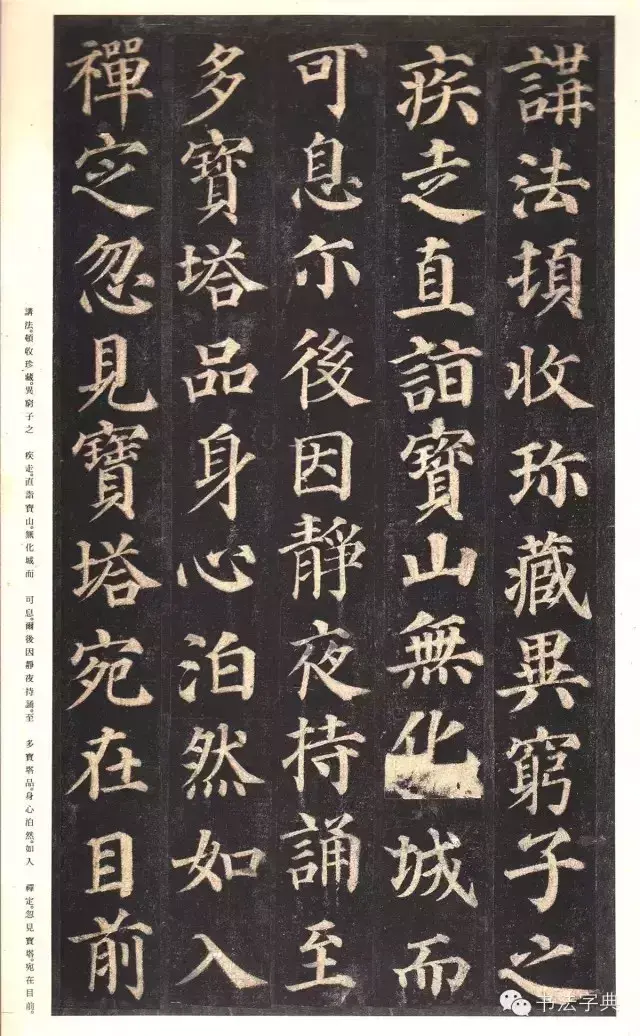 講法頓收珎藏異窮子之
疾走直詣寳山無化城而
可息尒後因靜夜持誦至
多寳塔品身心泊然如入
禪定忽見寳塔宛在目前
講法。頓收珍藏。異窮子之　疾走。直詣寶山。無化城而　可息。爾後因靜夜持誦。至　多寶塔品。身心泊然。如入　禪定。忽見寶塔。宛在目前。
书法字典